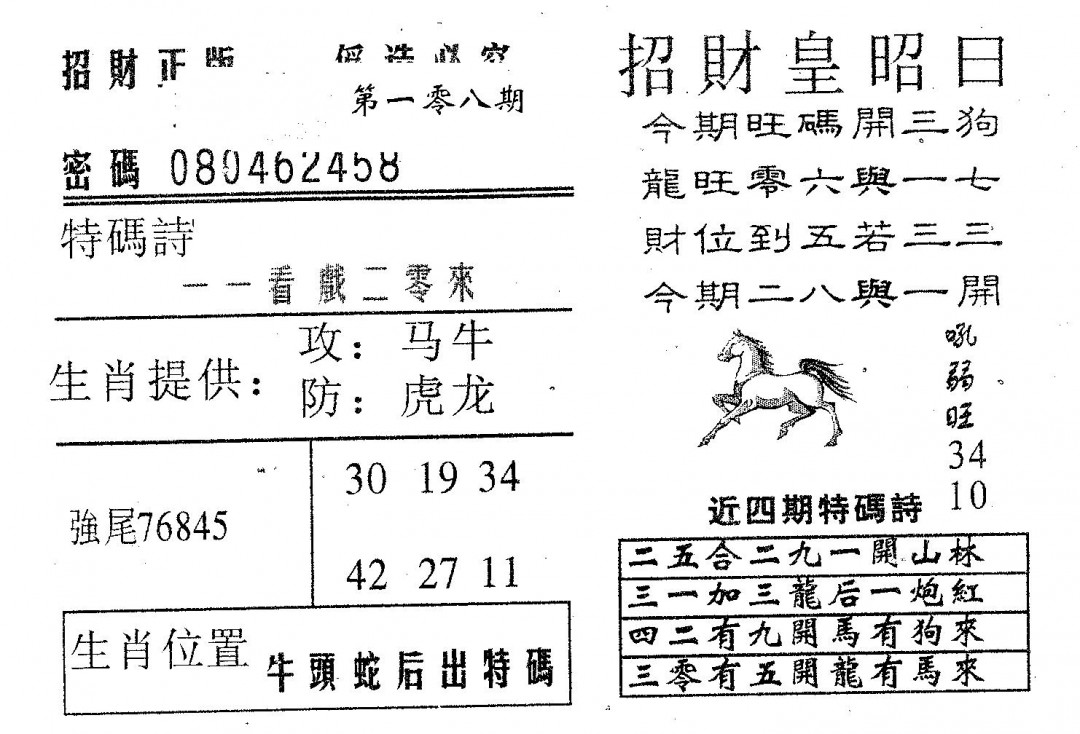 招財正版
第一零八期
密碼 080462458
特碼詩
一一看戲二零來
生肖提供：
攻：马牛
防：虎龙
強尾76845
30 19 34
42 27 11
生肖位置
牛頭蛇后出特碼
招財皇昭日
今期旺碼開三狗
龍旺零六與一七
財位到五若三三
今期二八與一開
吼
弱
旺
34
10
近四期特碼詩
二五合二九一開山林
三一加三龍后一炮紅
四二有九開馬有狗來
三零有五開龍有馬來